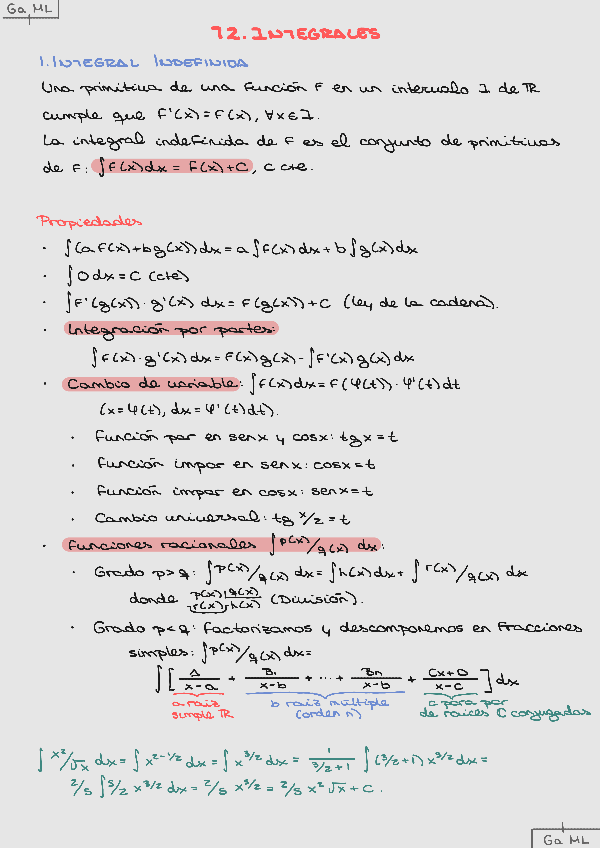 Ga ML
T2. INTEGRALES
1. INTEGRAL INDEFINIDA
Una primitiva de una función f en un intervalo I de ℝ
cumple que F'(x) = f(x), ∀x ∈ I.
La integral indefinida de f es el conjunto de primitivas
de f: ∫f(x)dx = F(x) + C, C cte.
Propiedades
· ∫(a f(x) + b g(x))dx = a ∫f(x)dx + b ∫g(x)dx
· ∫0dx = C (cte)
· ∫f'(g(x)) · g'(x) dx = f(g(x)) + C (ley de la cadena).
· Integración por partes:
∫f(x) · g'(x)dx = f(x)g(x) - ∫f'(x)g(x)dx
· Cambio de variable: ∫f(x)dx = f(φ(t)) · φ'(t)dt
(x = φ(t), dx = φ'(t)dt).
· Función par en senx y cosx: tgx = t
· Función impar en senx: cosx = t
· Función impar en cosx: senx = t
· Cambio universal: tg x/2 = t
· Funciones racionales ∫p(x)/q(x) dx:
· Grado p>q: ∫p(x)/q(x) dx = ∫h(x)dx + ∫r(x)/q(x) dx
donde p(x) | q(x) (División).
r(x) h(x)
· Grado p<q: factorizamos y descomponemos en fracciones
simples: ∫p(x)/q(x) dx =
∫[ A/x-a + B1/x-b + ... + Bn/x-b + Cx+D/x-c ] dx
a raiz b raiz múltiple c para par
simple ℝ (orden n) de raices ℂ conjugadas
∫x²/√x dx = ∫x^2-1/2 dx = ∫x^3/2 dx = 1/3/2+1 ∫(3/2+1) x^3/2 dx =
2/5 ∫5/2 x^3/2 dx = 2/5 x^5/2 = 2/5 x² √x + C.
Ga ML